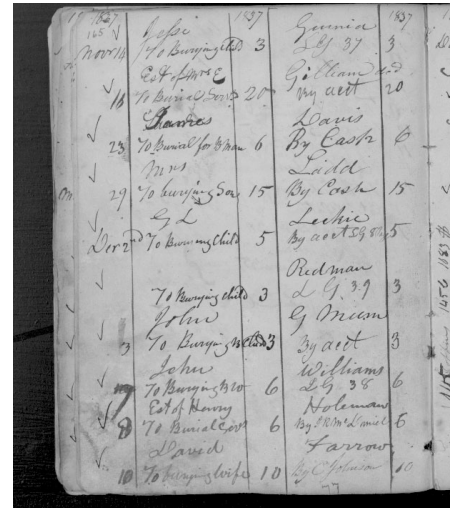 1837 1837 1837
165 Jessi Gwinia
Novr 14 To Burying Child 3 LG 37 3
Est of Mrs E Gilliam dcd
16 To Burial 20 By acct 20
James Davis
23 To Burial for B Man 6 By Cash 6
Mrs Ladd
29 To burying Son 15 By Cash 15
G L Leckie
Decr 2nd To Burying Child 5 By acct 5
Redman
To Burying child 3 LG 39 3
John G Mum
3 To Burying B Child 3 By acct 3
John Williams
7 To Burying B W 6 LG 38 6
Est of Henry Holeman
8 To Burial 6 By McDaniel 6
David Farrow
10 To burying wife 10 By C Johnson 10
77